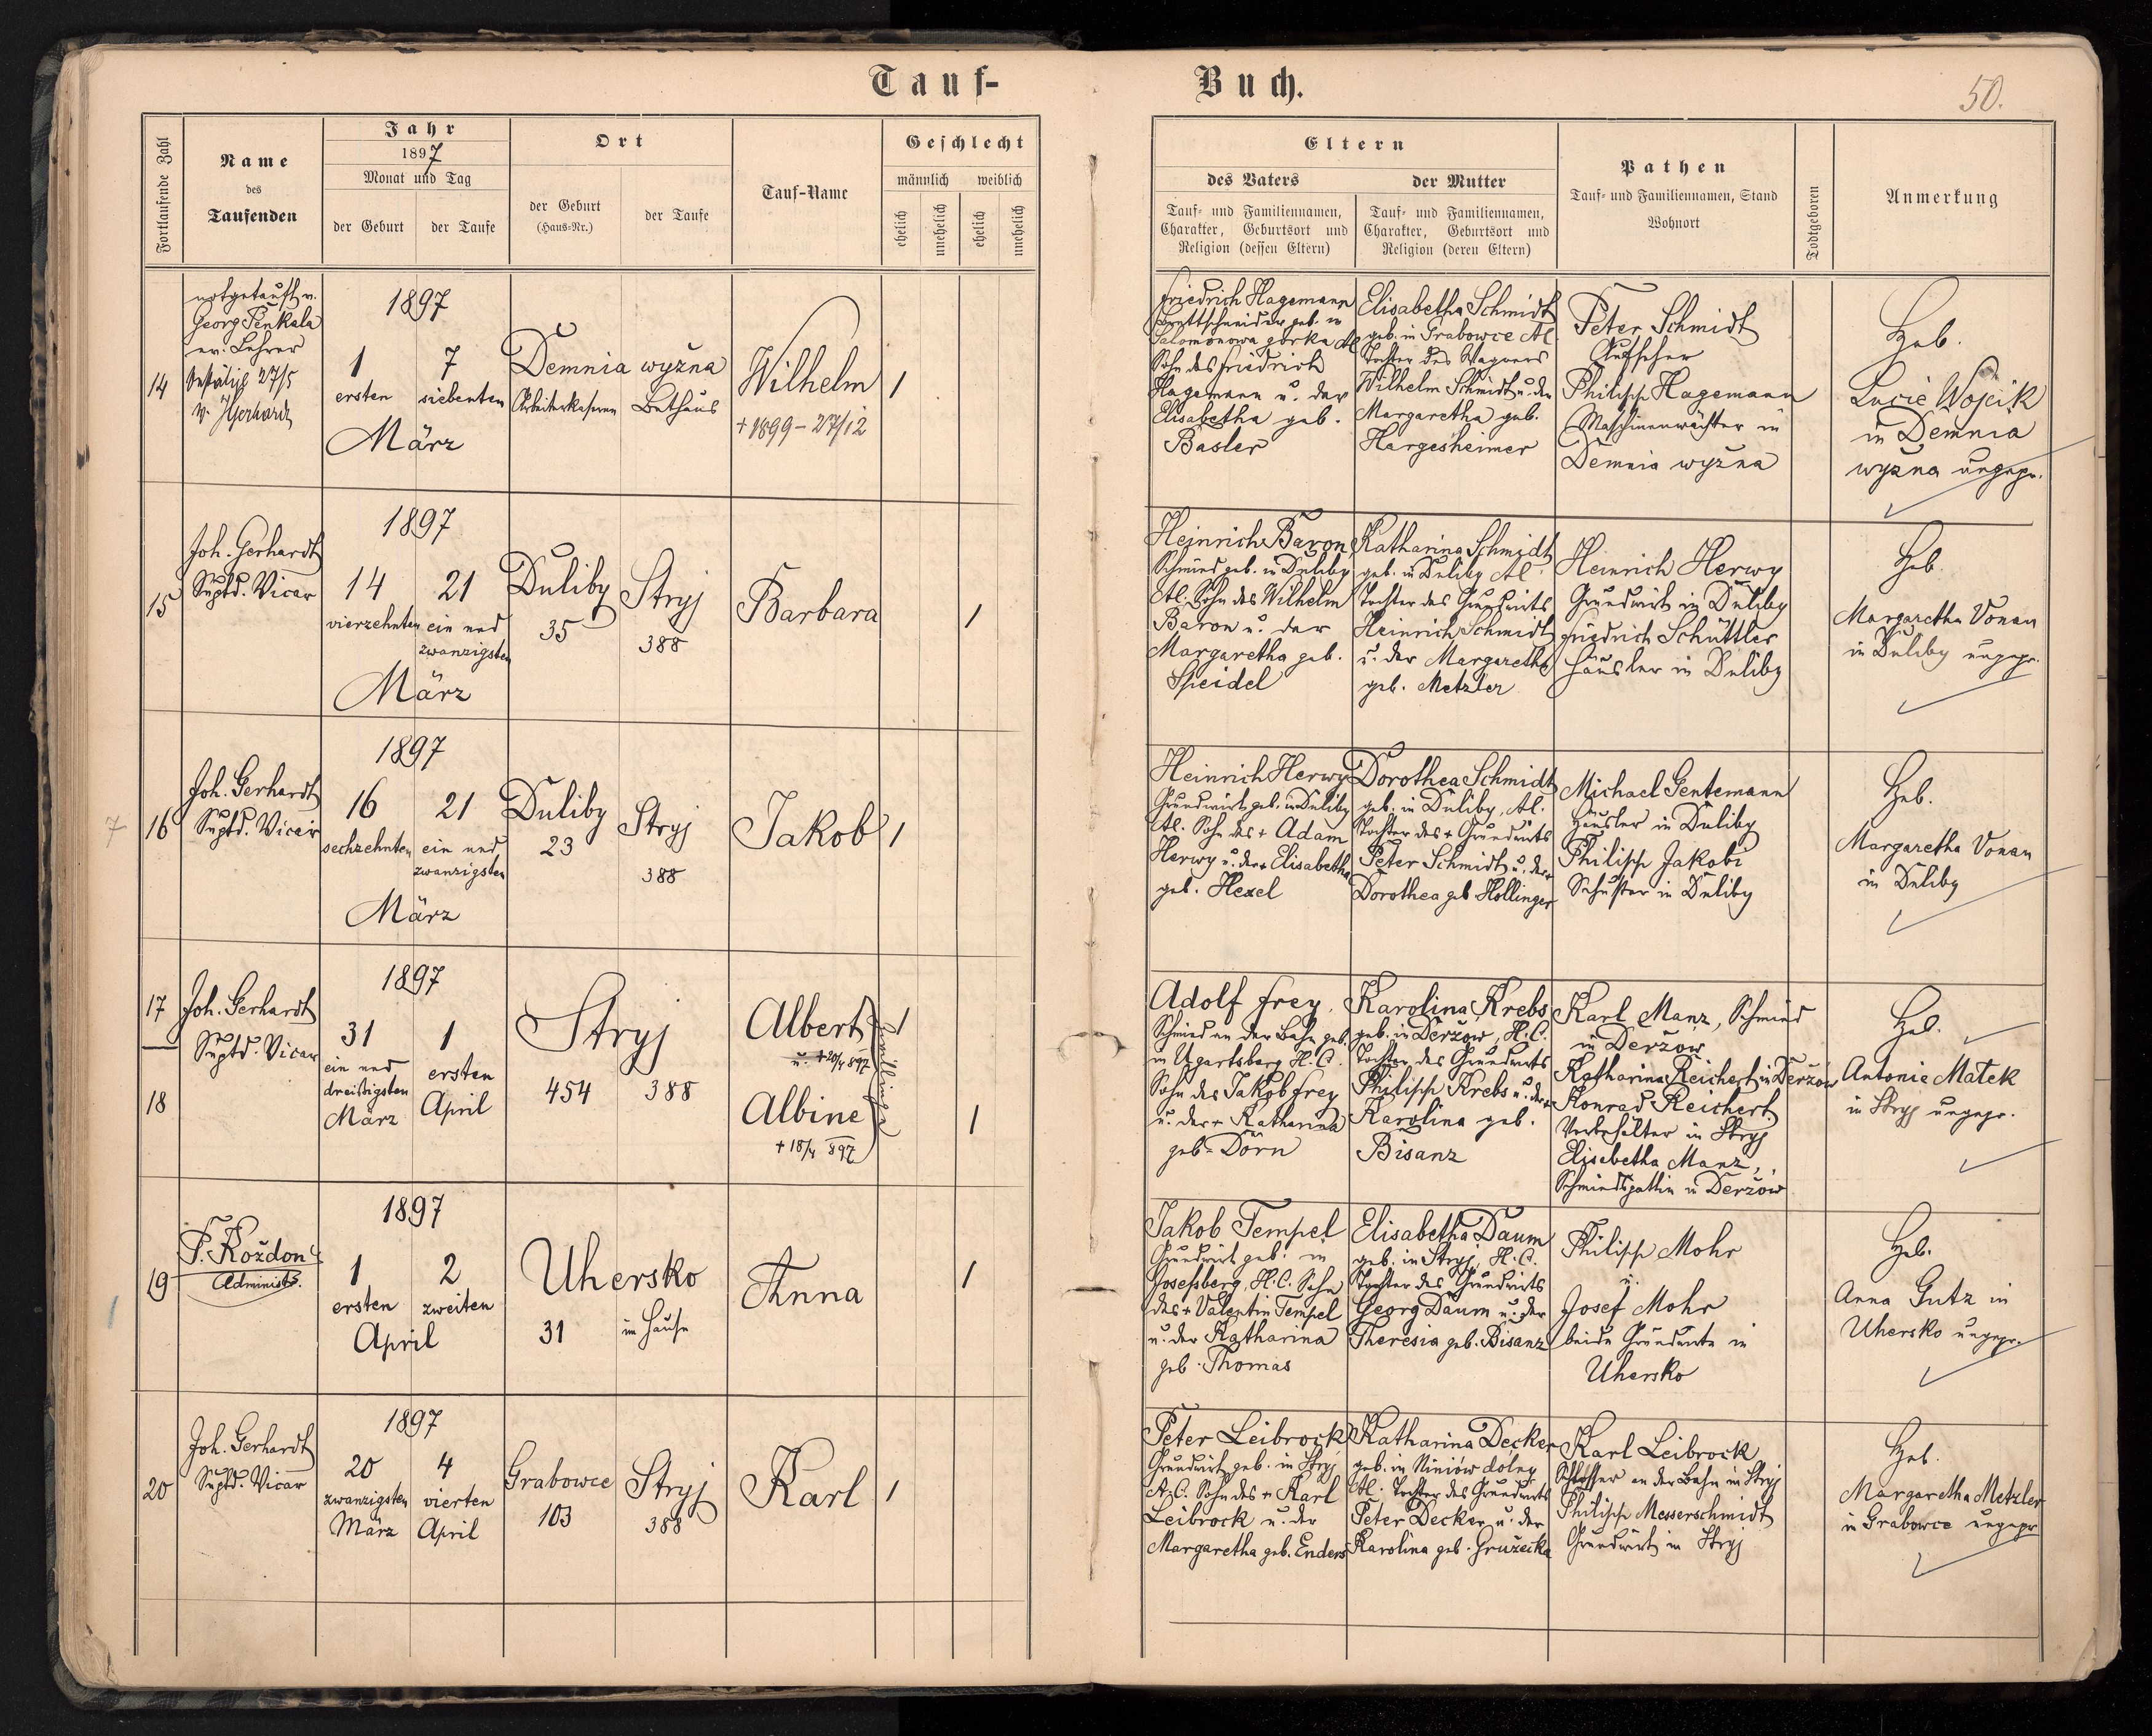 Tauf-
Buch.
50.
Fortlaufende Zahl
Name
des
Taufenden
Jahr
1897
Monat und Tag
der Geburt
der Taufe
Ort
der Geburt
(Haus-Nr.)
der Taufe
Tauf-Name
Geschlecht
männlich
weiblich
ehelich
unehelich
ehelich
unehelich
Eltern
des Vaters
Tauf- und Familiennamen,
Charakter, Geburtsort und
Religion (dessen Eltern)
der Mutter
Tauf- und Familiennamen,
Charakter, Geburtsort und
Religion (deren Eltern)
Pathen
Tauf- und Familiennamen, Stand
Wohnort
Todtgeboren
Anmerkung
14
notgetauft v.
Georg Penkala
ev. Lehrer
27/5
v. JGerhardt
1897
1
ersten
7
siebenten
März
Demnia wyžna
Arbeiterkasernen
Bethaus
Wilhelm
+ 1899 – 27/12
1
Friedrich Hagemann
Brettschneider geb. in
Salomonowa gorka AC
Sohn des Friedrich
Hagemann u. der
Elisabetha geb.
Basler
Elisabetha Schmidt
geb. in Grabowce AC.
Tochter des Wagners
Wilhelm Schmidt u. der
Margaretha geb.
Hargesheimer
Peter Schmidt
Aufseher
Philipp Hagemann
Maschinenwächter in
Demnia wyžna
Heb.
Lucie Wojcik
in Demnia
wyzna ungepr.
15
Joh. Gerhardt
Suptd. Vicar
1897
14
vierzehnten
21
ein und
zwanzigsten
März
Duliby
35
Stryj
388
Barbara
1
Heinrich Baron
Schmied geb. in Duliby
AC. Sohn des Wilhelm
Baron u. der
Margaretha geb.
Speidel
Katharina Schmidt
geb. in Duliby AC
Tochter des Grundwirts
Heinrich Schmidt
u. der Margaretha
geb. Metzler
Heinrich Herwy
Grundwirt in Duliby
Friedrich Schüttler
Häusler in Duliby
Heb.
Margaretha Vonau
in Duliby ungepr.
7
16
Joh. Gerhardt
Suptd. Vicar
1897
16
sechzehnten
21
ein und
zwanzigsten
März
Duliby
23
Stryj
388
Jakob
1
Heinrich Herwy
Grundwirt geb. in Duliby
AC. Sohn des + Adam
Herwy u. der + Elisabetha
geb. Hexel
Dorothea Schmidt
geb. in Duliby, AC.
Tochter des + Grundwirts
Peter Schmidt u. der +
Dorothea geb Hollinger
Michael Gentemann
Häusler in Duliby
Philipp Jakobi
Schuster in Duliby
Heb.
Margaretha Vonau
in Duliby
17
18
Joh. Gerhardt
Suptd. Vicar
1897
31
ein und
dreißigsten
März
1
ersten
April
Stryj
454
388
Albert
u. + 20/4 897
Albine
+ 18/4 897
Zwillinge
1
1
Adolf Frey,
Schmied an der Bahn geb.
in Ugartsberg H.C.
Sohn des Jakob Frey
u. der + Katharina
geb. Dörn
Karolina Krebs
geb. in Deržow, H.C.
Tochter des Grundwirts
Philipp Krebs u. der +
Karolina geb.
Bisanz
Karl Manz, Schmied
in Deržow
Katharina Reichert in Deržow
Konrad Reichert
in Stryj
Elisabetha Manz,
Schmiedsgattin in Deržow
Heb.
Antonie Matek
in Stryj ungepr.
1
19
P. Koždoń
Administr.
1897
1
ersten
2
zweiten
April
Uhersko
31
im Hause
Anna
1
Jakob Tempel
Grundwirt geb. in
Josefsberg H.C. Sohn
des + Valentin Tempel
u. der Katharina
geb. Thomas
Elisabetha Daum
geb. in Stryj, H.C.
Tochter des Grundwirts
Georg Daum u. der
Theresia geb. Bisanz
Philipp Mohr
u.
Josef Mohr
beide Grundwirte in
Uhersko
Heb.
Anna Gutz in
Uhersko ungepr.
20
Joh. Gerhardt
Suptd. Vicar
1897
20
zwanzigsten
März
4
vierten
April
Grabowce
103
Stryj
388
Karl
1
Peter Leibrock
Grundwirt geb. in Stryj
A.C. Sohn des + Karl
Leibrock u. der
Margaretha geb. Enders
Katharina Decker
geb. in Niniów dolny
AC. Tochter des Grundwirts
Peter Decker u. der
Karolina geb. Gružecka
Karl Leibrock
Schlosser an der Bahn in Stryj
Philipp Messerschmidt
Grundwirt in Stryj
Heb.
Margaretha Metzler
in Grabowce ungepr